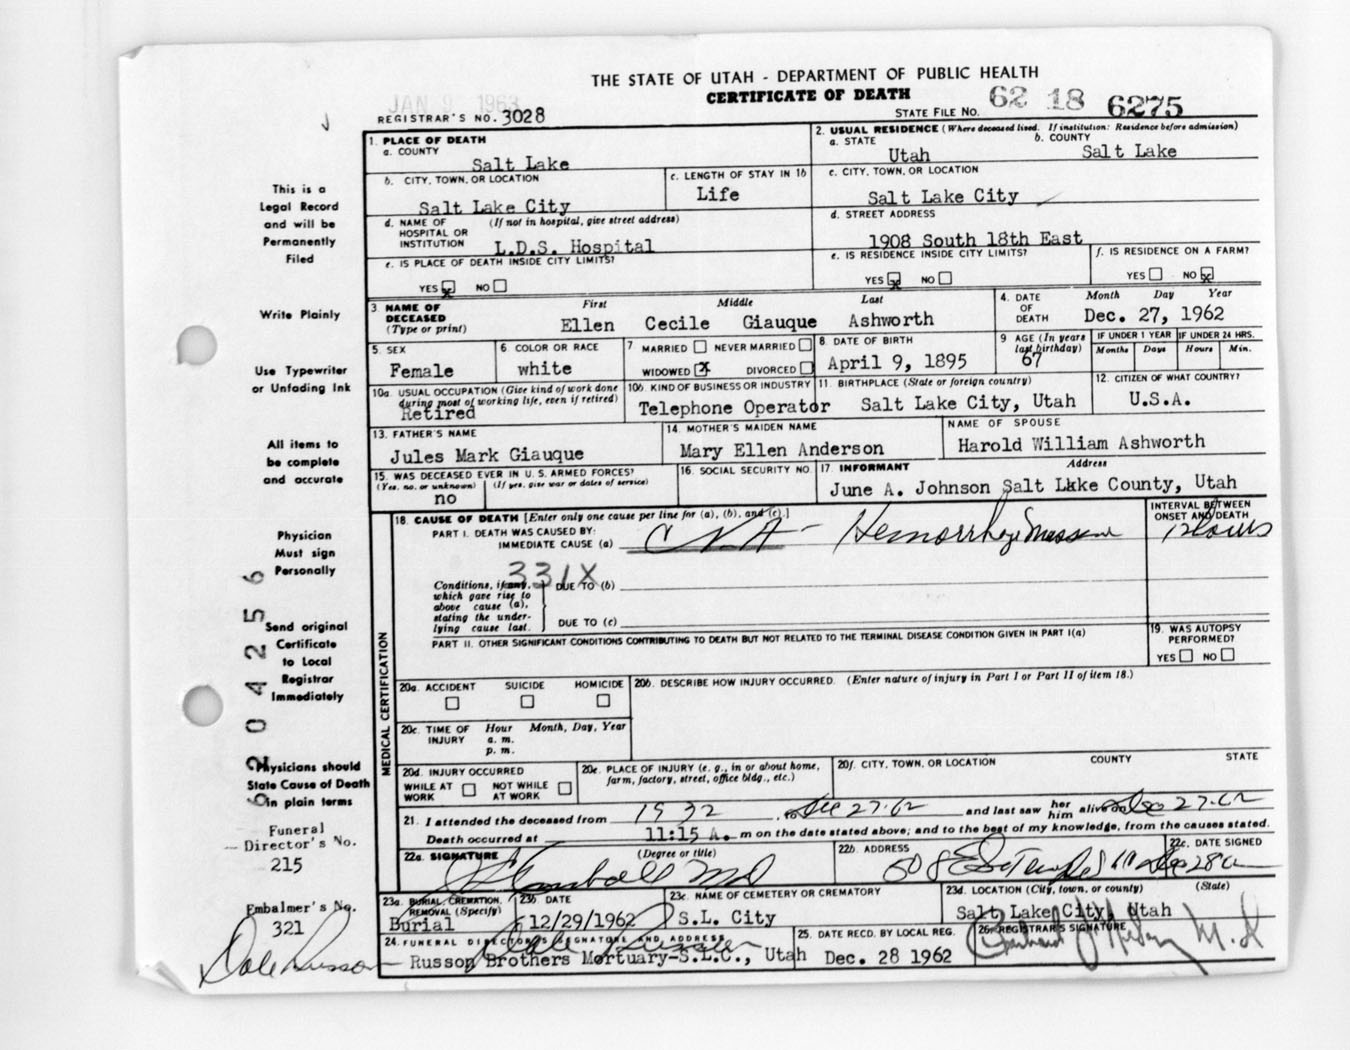 THE STATE OF UTAH - DEPARTMENT OF PUBLIC HEALTH
CERTIFICATE OF DEATH
JAN 9 1963
REGISTRAR'S NO. 3028
STATE FILE NO. 62 18 6275
1. PLACE OF DEATH
a. COUNTY
Salt Lake
2. USUAL RESIDENCE (Where deceased lived. If institution: Residence before admission)
a. STATE
Utah
b. COUNTY
Salt Lake
b. CITY, TOWN, OR LOCATION
Salt Lake City
c. LENGTH OF STAY IN 1b
Life
c. CITY, TOWN, OR LOCATION
Salt Lake City
d. NAME OF HOSPITAL OR INSTITUTION (If not in hospital, give street address)
L.D.S. Hospital
d. STREET ADDRESS
1908 South 18th East
e. IS PLACE OF DEATH INSIDE CITY LIMITS?
YES X NO
e. IS RESIDENCE INSIDE CITY LIMITS?
YES X NO
f. IS RESIDENCE ON A FARM?
YES NO X
3. NAME OF DECEASED (Type or print)
First Middle Last
Ellen Cecile Giauque Ashworth
4. DATE OF DEATH
Month Day Year
Dec. 27, 1962
5. SEX
Female
6. COLOR OR RACE
white
7 MARRIED NEVER MARRIED
WIDOWED X DIVORCED
8. DATE OF BIRTH
April 9, 1895
9 AGE (In years last birthday)
67
IF UNDER 1 YEAR
Months Days
IF UNDER 24 HRS.
Hours Min.
10a. USUAL OCCUPATION (Give kind of work done during most of working life, even if retired)
Retired
10b. KIND OF BUSINESS OR INDUSTRY
Telephone Operator
11. BIRTHPLACE (State or foreign country)
Salt Lake City, Utah
12. CITIZEN OF WHAT COUNTRY?
U.S.A.
13. FATHER'S NAME
Jules Mark Giauque
14. MOTHER'S MAIDEN NAME
Mary Ellen Anderson
NAME OF SPOUSE
Harold William Ashworth
15. WAS DECEASED EVER IN U.S. ARMED FORCES?
(Yes, no, or unknown) (If yes, give war or dates of service)
no
16. SOCIAL SECURITY NO.
17. INFORMANT Address
June A. Johnson Salt Lake County, Utah
MEDICAL CERTIFICATION
18. CAUSE OF DEATH [Enter only one cause per line for (a), (b), and (c).]
PART I. DEATH WAS CAUSED BY:
IMMEDIATE CAUSE (a) CVA - Hemorrhage
INTERVAL BETWEEN ONSET AND DEATH
331X
Conditions, if any, which gave rise to above cause (a), stating the underlying cause last.
DUE TO (b)
DUE TO (c)
PART II. OTHER SIGNIFICANT CONDITIONS CONTRIBUTING TO DEATH BUT NOT RELATED TO THE TERMINAL DISEASE CONDITION GIVEN IN PART I(a)
19. WAS AUTOPSY PERFORMED?
YES NO
20a. ACCIDENT SUICIDE HOMICIDE
20b. DESCRIBE HOW INJURY OCCURRED. (Enter nature of injury in Part I or Part II of item 18.)
20c. TIME OF INJURY Hour Month, Day, Year
a. m.
p. m.
20d. INJURY OCCURRED
WHILE AT WORK NOT WHILE AT WORK
20e. PLACE OF INJURY (e. g., in or about home, farm, factory, street, office bldg., etc.)
20f. CITY, TOWN, OR LOCATION COUNTY STATE
21. I attended the deceased from 1932, to Dec 27-62 and last saw her him alive on Dec 27-62
Death occurred at 11:15 A. m on the date stated above; and to the best of my knowledge, from the causes stated.
22a. SIGNATURE (Degree or title)
22b. ADDRESS
22c. DATE SIGNED
23a. BURIAL, CREMATION, REMOVAL (Specify)
Burial
23b. DATE
12/29/1962
23c. NAME OF CEMETERY OR CREMATORY
S.L. City
23d. LOCATION (City, town, or county) (State)
Salt Lake City, Utah
24. FUNERAL DIRECTOR'S SIGNATURE AND ADDRESS
Russon Brothers Mortuary-S.L.C., Utah
25. DATE RECD. BY LOCAL REG.
Dec. 28 1962
26. REGISTRAR'S SIGNATURE
This is a
Legal Record
and will be
Permanently
Filed
Write Plainly
Use Typewriter
or Unfading Ink
All items to
be complete
and accurate
Physician
Must sign
Personally
Send original
Certificate
to Local
Registrar
Immediately
Physicians should
State Cause of Death
in plain terms
Funeral
Director's No.
215
Embalmer's No.
321
Dale Russon